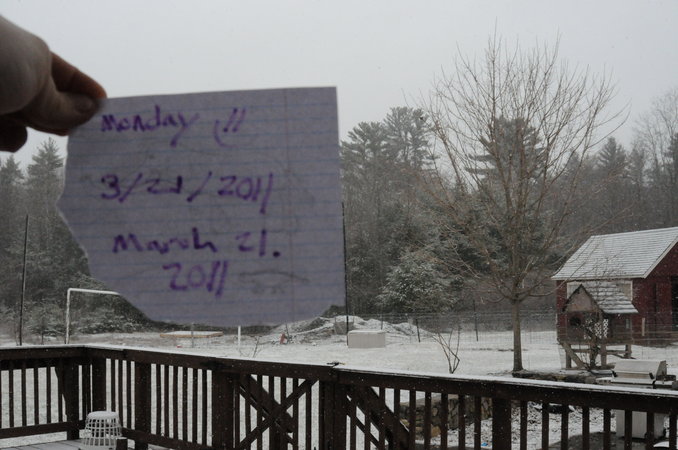 Monday !!
3/21/2011
March 21.
2011